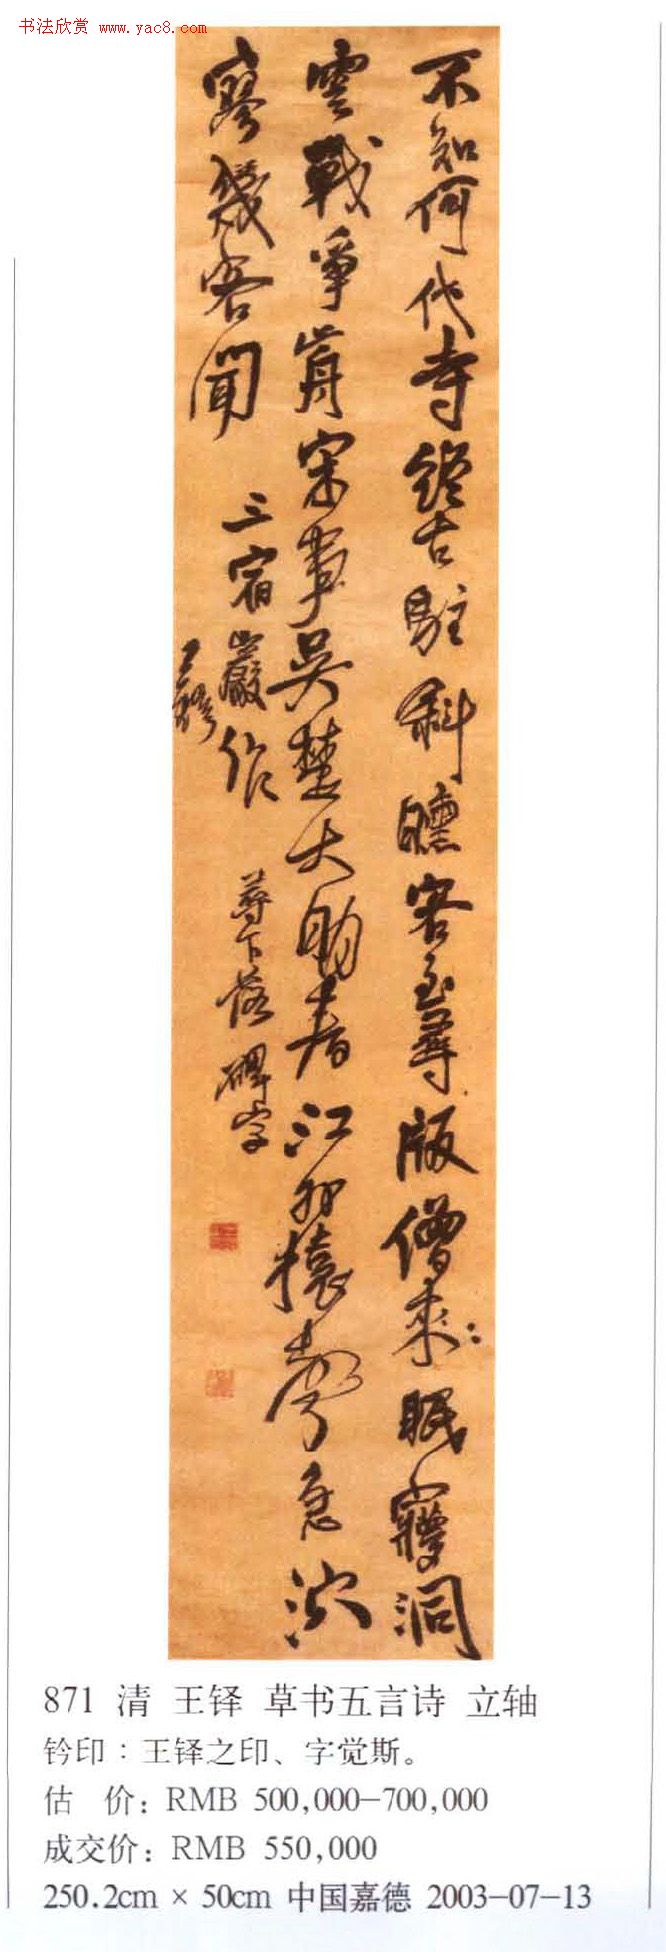 书法欣赏 www.yac8.com
不知何代寺終古駐斜曛客至尋版僧來眠夢洞
雲戰爭前宋事吳楚大明 江外猿聲急泬
寥幾客聞
三宿巖作 尋下落碑字
王鐸
871 清 王铎 草书五言诗 立轴
钤印：王铎之印、字觉斯。
估 价：RMB 500,000-700,000
成交价：RMB 550,000
250.2cm × 50cm 中国嘉德 2003-07-13